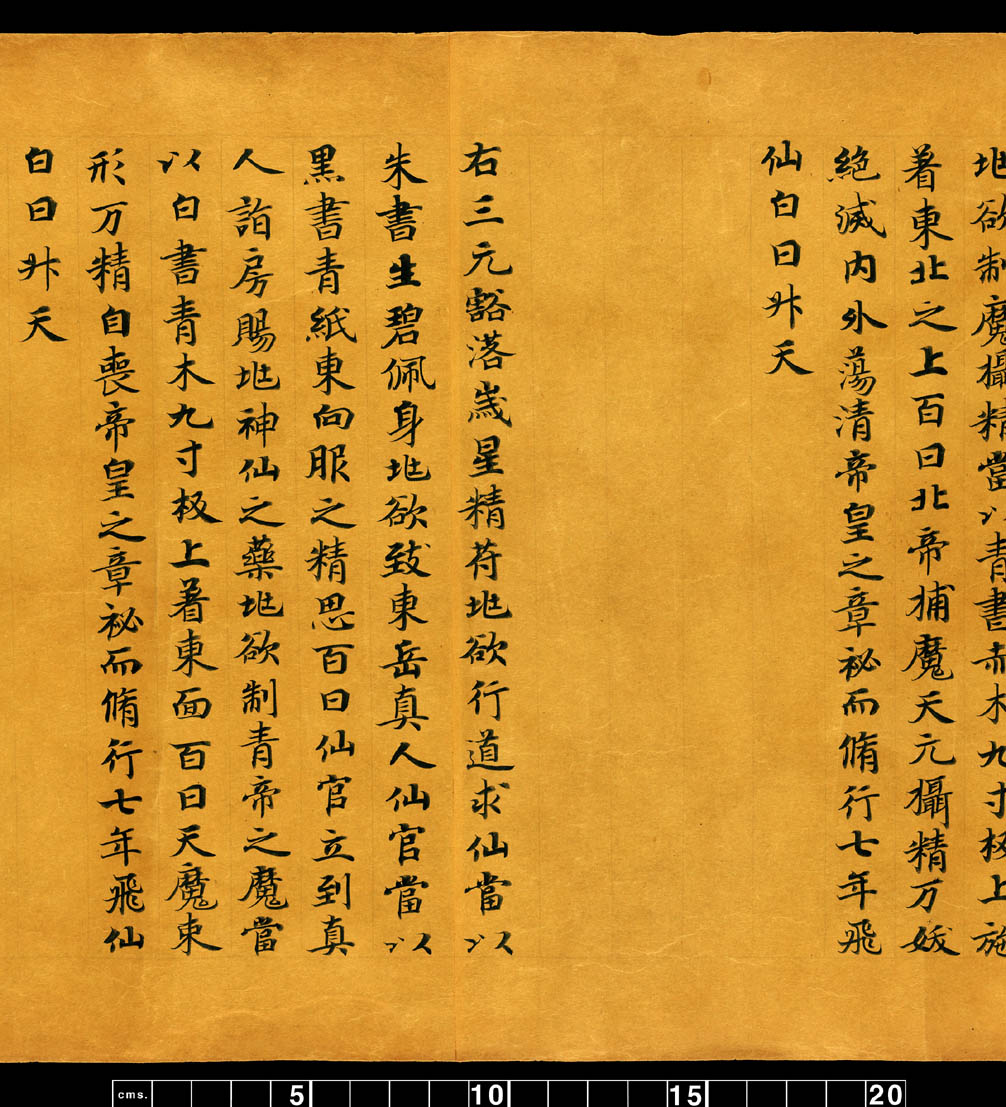 地欲制魔攝精當以青書赤木九寸板上施
着東北之上百日北帝捕魔天元攝精万妖
絕滅内外蕩清帝皇之章祕而脩行七年飛
仙白日昇天
右三元豁落歲星精符地欲行道求仙當以
朱書生碧佩身地欲致東岳真人仙官當以
黑書青紙東向服之精思百日仙官立到真
人詣房賜地神仙之藥地欲制青帝之魔當
以白書青木九寸板上着東面百日天魔束
形万精自喪帝皇之章祕而脩行七年飛仙
白日昇天
cms. 5 10 15 20